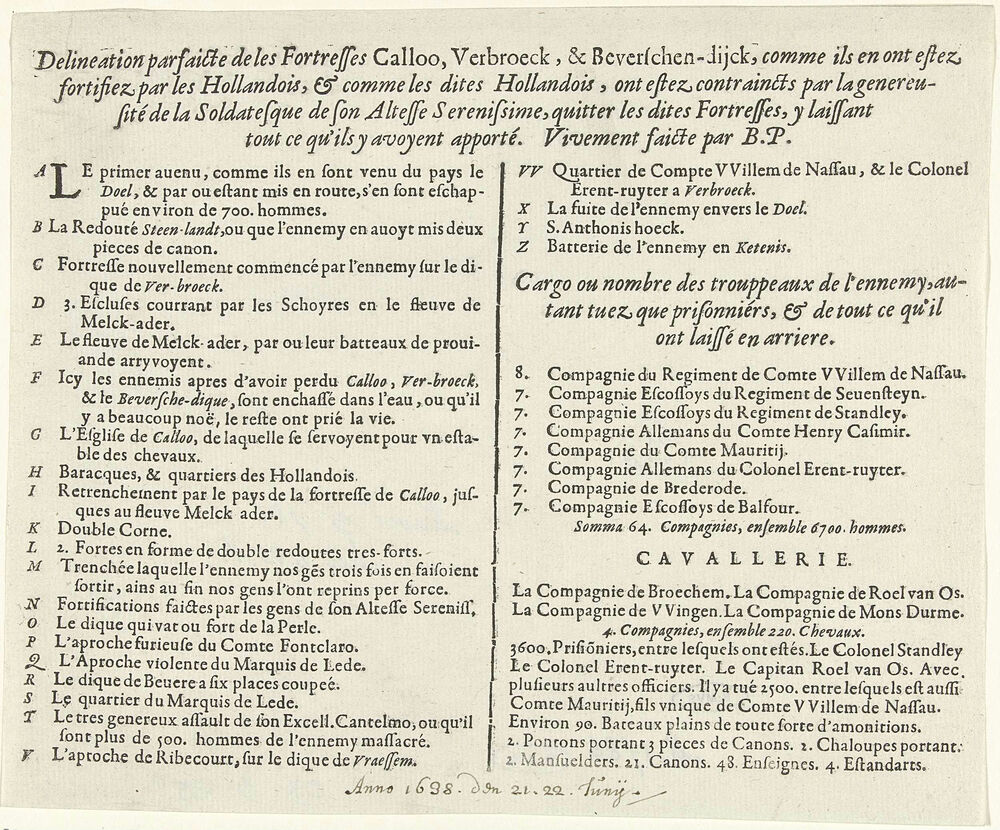 Delineation parfaicte de les Fortreſſes Calloo, Verbroeck, & Beverſchen-dijck, comme ils en ont eſtez
fortifiez par les Hollandois, & comme les dites Hollandois, ont eſtez contraincts par la genereu-
ſité de la Soldateſque de ſon Alteſſe Sereniſſime, quitter les dites Fortreſſes, y laiſſant
tout ce qu'ils y avoyent apporté. Vivement faicte par B.P.
A LE primer auenu, comme ils en ſont venu du pays le
Doel, & par ou eſtant mis en route, s'en ſont eſchap-
pué environ de 700. hommes.
B La Redouté Steen-landt, ou que l'ennemy en auoyt mis deux
pieces de canon.
C Fortreſſe nouvellement commencé par l'ennemy ſur le di-
que de Ver-broeck.
D 3. Eſcluſes courrant par les Schoyres en le fleuve de
Melck-ader.
E Le fleuve de Melck-ader, par ou leur batteaux de proui-
ande arryvoyent.
F Icy les ennemis apres d'avoir perdu Calloo, Ver-broeck,
& le Beverſche-dique, ſont enchaſſé dans l'eau, ou qu'il
y a beaucoup noë, le reſte ont prié la vie.
G L'Eſgliſe de Calloo, de laquelle ſe ſervoyent pour vn eſta-
ble des chevaux.
H Baracques, & quartiers des Hollandois.
I Retrenchement par le pays de la fortreſſe de Calloo, juſ-
ques au fleuve Melck ader.
K Double Corne.
L 2. Fortes en forme de double redoutes tres-forts.
M Trenchée laquelle l'ennemy nos gēs trois fois en faiſoient
ſortir, ains au fin nos gens l'ont reprins per force.
N Fortifications faictes par les gens de ſon Alteſſe Sereniſſ.
O Le dique qui vat ou fort de la Perle.
P L'aproche furieuſe du Comte Fontclaro.
Q L'Aproche violente du Marquis de Lede.
R Le dique de Beuere a ſix places coupeé.
S Le quartier du Marquis de Lede.
T Le tres genereux aſſault de ſon Excell. Cantelmo, ou qu'il
ſont plus de 500. hommes de l'ennemy maſſacré.
V L'aproche de Ribecourt, ſur le dique de Vraeſſem.
VV Quartier de Compte VVillem de Naſſau, & le Colonel
Erent-ruyter a Verbroeck.
X La fuite de l'ennemy envers le Doel.
Y S. Anthonis hoeck.
Z Batterie de l'ennemy en Ketenis.
Cargo ou nombre des trouppeaux de l'ennemy, au-
tant tuez que priſonniérs, & de tout ce qu'il
ont laiſſé en arriere.
8. Compagnie du Regiment de Comte VVillem de Naſſau.
7. Compagnie Eſcoſſoys du Regiment de Seuenſteyn.
7. Compagnie Eſcoſſoys du Regiment de Standley.
7. Compagnie Allemans du Comte Henry Caſimir.
7. Compagnie du Comte Mauritij.
7. Compagnie Allemans du Colonel Erent-ruyter.
7. Compagnie de Brederode.
7. Compagnie Eſcoſſoys de Balfour.
Somma 64. Compagnies, enſemble 6700. hommes.
CAVALLERIE.
La Compagnie de Broechem. La Compagnie de Roel van Os.
La Compagnie de VVingen. La Compagnie de Mons Durme.
4. Compagnies, enſemble 220. Chevaux.
3600. Priſiōniers, entre leſquels ont eſtés. Le Colonel Standley
Le Colonel Erent-ruyter. Le Capitan Roel van Os. Avec
pluſieurs aultres officiers. Il y a tué 2500. entre leſquels eſt auſſi
Comte Mauritij, fils vnique de Comte VVillem de Naſſau.
Environ 90. Bateaux plains de toute ſorte d'amonitions.
2. Pontons portant 3 pieces de Canons. 2. Chaloupes portant:
2. Manſuelders. 21. Canons. 48. Enſeignes. 4. Eſtandarts.
Anno 1638. den 21. 22. Junij.